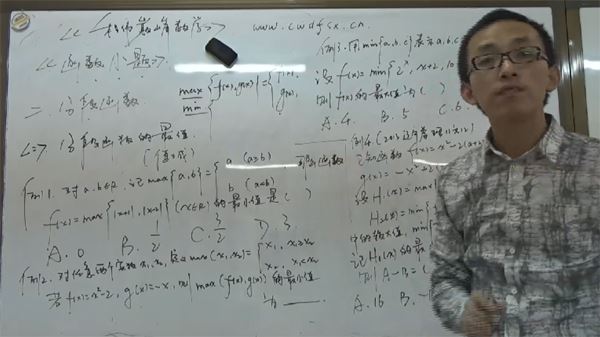 www.cwdfsx.cn
<<函数小题>>
二、分段函数
max
min
{f(x), g(x)} = { f(x),
g(x),
<二> 分段函数的最值.
例1. 对a.b∈R, 记max{a,b} = { a (a≥b)
b (a<b)
, 函数
f(x) = max{|x+1|, |x-2|} (x∈R) 的最小值是( )
A. 0 B. 1/2 C. 3/2 D. 3.
例2. 对任意两个实数x₁,x₂, 定义max(x₁,x₂) = { x₁, x₁≥x₂
x₂, x₁<x₂
若f(x)=x²-2, g(x)=-x, 则max(f(x),g(x))的最小值
为
例3. 用min{a,b,c}表示a,b,c
设f(x)=min{2ˣ, x+2, 10
则f(x)的最大值为( )
A. 4 B. 5 C. 6
例4
已知函数f(x)=x²-2(a+
g(x)=-x²+2(
设H₁(x)=max{
H₂(x)=min{f
中的较大值, min{
记H₁(x)的最
则A-B=(
A. 16 B. -